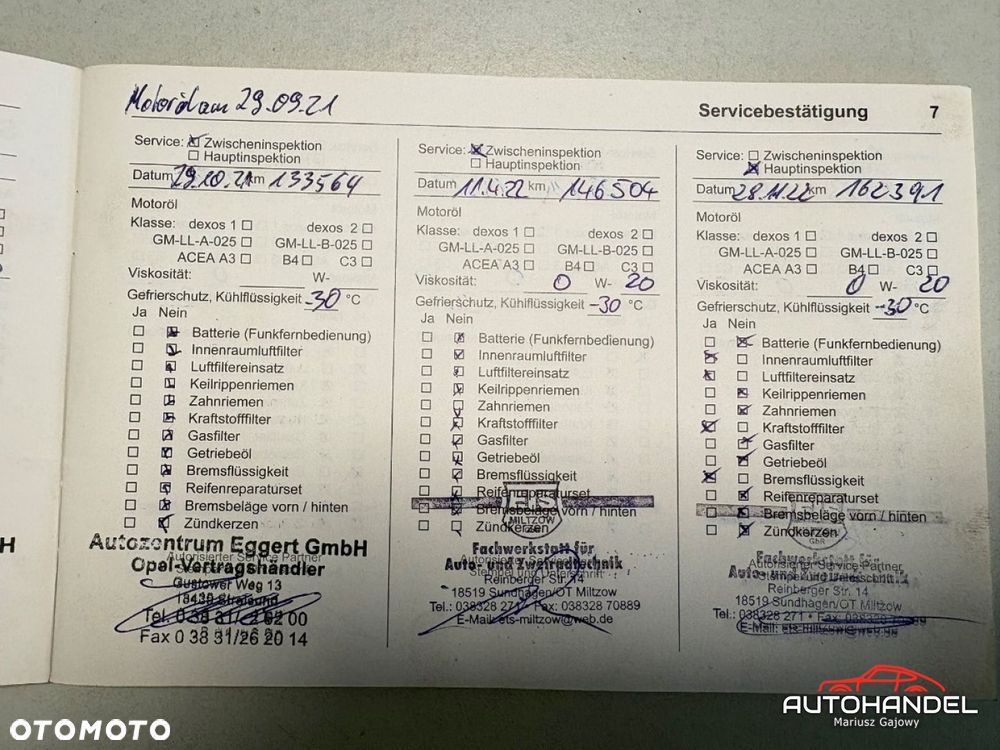 Motoröl am 29.09.21
Servicebestätigung 7
Service: Zwischeninspektion
Hauptinspektion
Datum 29.10.21 km 133564
Motoröl
Klasse: dexos 1 dexos 2
GM-LL-A-025 GM-LL-B-025
ACEA A3 B4 C3
Viskosität: W-
Gefrierschutz, Kühlflüssigkeit -30 °C
Ja Nein
Batterie (Funkfernbedienung)
Innenraumluftfilter
Luftfiltereinsatz
Keilrippenriemen
Zahnriemen
Kraftstofffilter
Gasfilter
Getriebeöl
Bremsflüssigkeit
Reifenreparaturset
Bremsbeläge vorn / hinten
Zündkerzen
Autozentrum Eggert GmbH
Autorisierter Service Partner
Opel-Vertragshändler
Gustower Weg 13
18439 Stralsund
Tel. 0 38 31/ 00
Fax 0 38 31/26 20 14
Service: Zwischeninspektion
Hauptinspektion
Datum 11.4.22 km 146504
Motoröl
Klasse: dexos 1 dexos 2
GM-LL-A-025 GM-LL-B-025
ACEA A3 B4 C3
Viskosität: 0 W- 20
Gefrierschutz, Kühlflüssigkeit -30 °C
Ja Nein
Batterie (Funkfernbedienung)
Innenraumluftfilter
Luftfiltereinsatz
Keilrippenriemen
Zahnriemen
Kraftstofffilter
Gasfilter
Getriebeöl
Bremsflüssigkeit
Reifenreparaturset
Bremsbeläge vorn / hinten
MILTZOW
Zündkerzen
Fachwerkstatt für
Auto- und Zweiradtechnik
Stempel und Unterschrift
Reinberger Str. 14
18519 Sundhagen/OT Miltzow
Tel.: 038328 271 Fax: 038328 70889
E-Mail: ets-miltzow@web.de
Service: Zwischeninspektion
Hauptinspektion
Datum 28.11.22 km 162391
Motoröl
Klasse: dexos 1 dexos 2
GM-LL-A-025 GM-LL-B-025
ACEA A3 B4 C3
Viskosität: 0 W- 20
Gefrierschutz, Kühlflüssigkeit -30 °C
Ja Nein
Batterie (Funkfernbedienung)
Innenraumluftfilter
Luftfiltereinsatz
Keilrippenriemen
Zahnriemen
Kraftstofffilter
Gasfilter
Getriebeöl
Bremsflüssigkeit
Reifenreparaturset
Bremsbeläge vorn / hinten
Zündkerzen
GbR
Fachwerkstatt für
Autorisierter Service Partner
Stempel und Unterschrift
Reinberger Str. 14
18519 Sundhagen/OT Miltzow
Tel.: 038328 271 • Fax:
E-Mail: ets-miltzow@web.de
H
AUTOHANDEL
Mariusz Gajowy
OTOMOTO